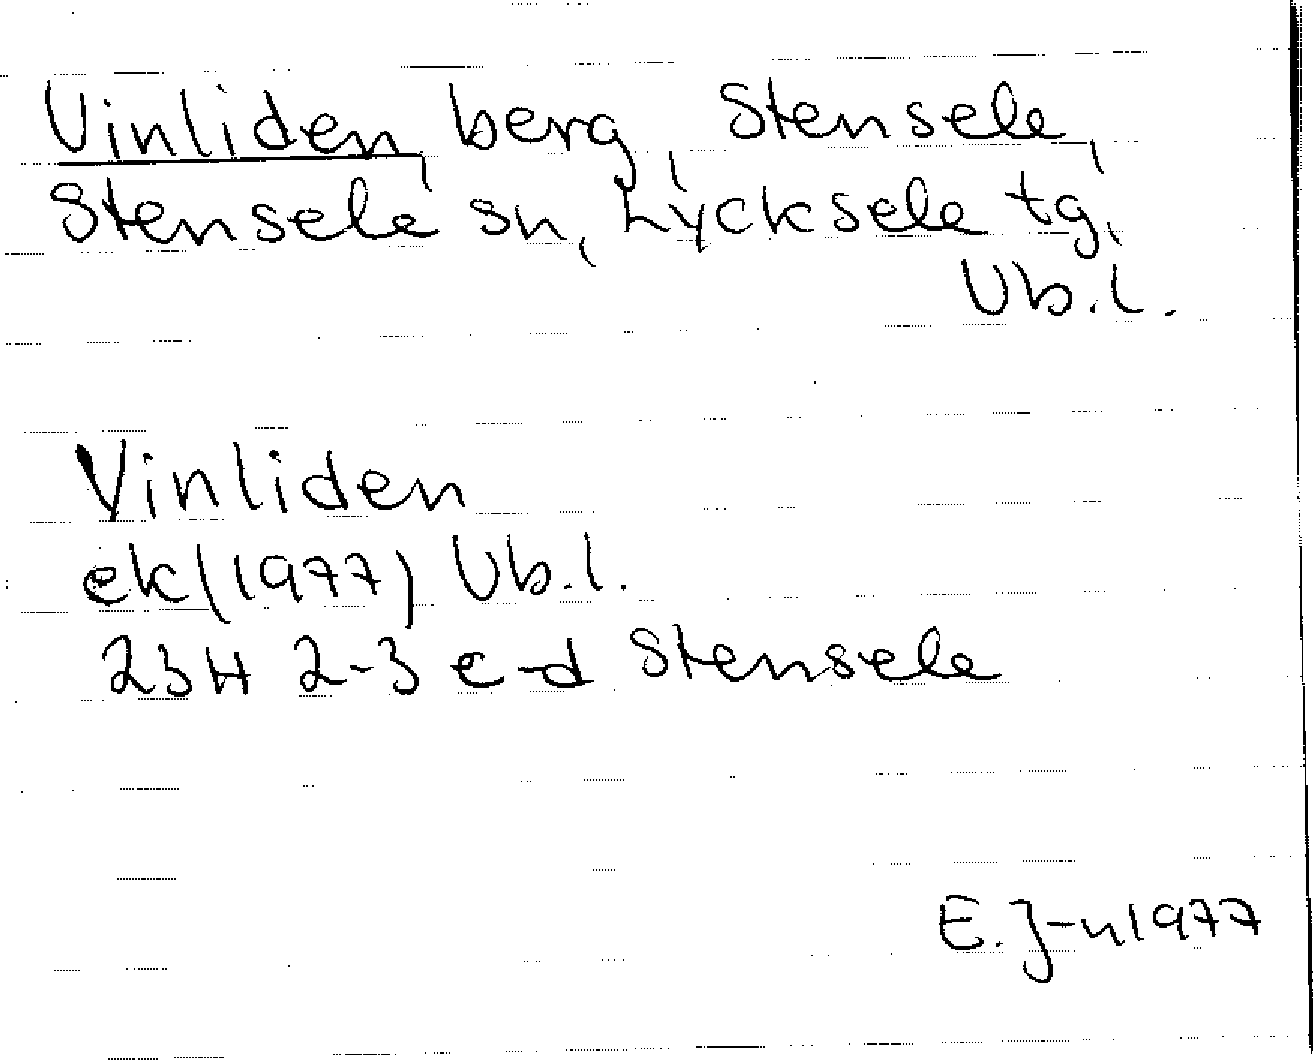 Vinliden, berg, Stensele,
Stensele sn, Lycksele tg,
Vb.l.
Vinliden
ek (1977) Vb.l.
23H 2-3 c-d Stensele
E. J-n 1977